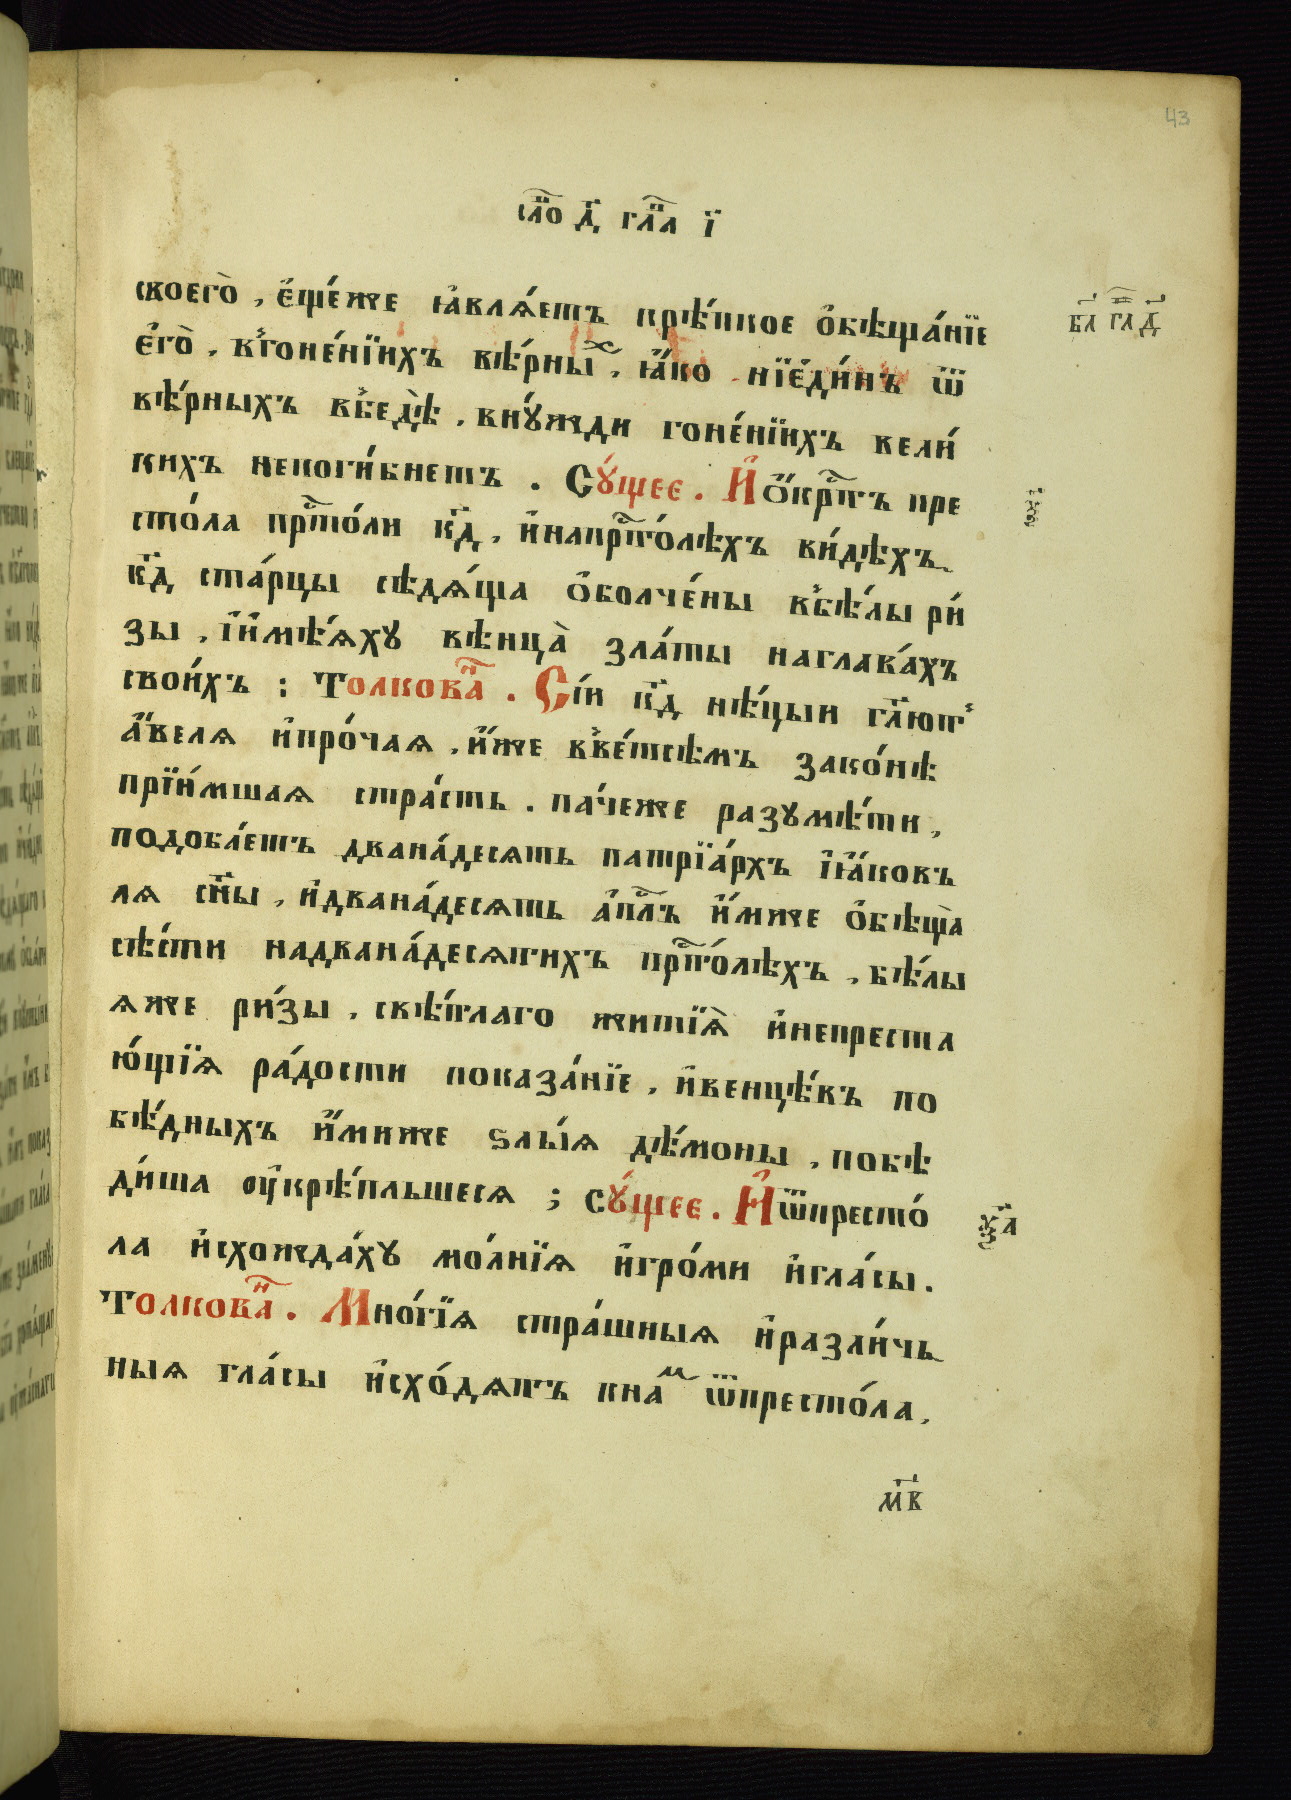 43
сло́ д҃ гла̀ і҃
своего̀, є҆ще́же ꙗ҆влѧ́етъ крѣ́пкое ѻ҆бѣща́нїе
є҆го̀. в̾гоне́нїихъ вѣ́рныⷯ, ꙗ҆́ко нїєди́нъ ѿ
вѣ́рныхъ в̾бедѣ̀, внꙋ́жди гоне́нїихъ вели́
кихъ непоги́бнетъ. Сꙋ́щее. И҆ ѻ҆́крⷭ҇тъ пре
сто́ла прⷭ҇то́ли к҃д, и҆напрⷭ҇то́лѣхъ ви́дѣхъ
к҃д ста́рцы сѣдѧ́ща ѻ҆болче́ны в̾бѣ́лы ри́
зы, і҆и҆мѣ́ѧхꙋ вѣнца̀ зла́ты наглава́хъ
свои́хъ: Толковаⷩ҇. Сі́и к҃д нѣ́цыи гл҃ют̾
а҆́велѧ и҆про́чаѧ, и҆́же в̾ве́тсѣмъ зако́нѣ
прїи́мшаѧ стра́сть. па́чеже разꙋмѣ́ти,
подоба́етъ двана́десѧть патрїа́рхъ і҆ꙗ҆́ковъ
лѧ сн҃ы, и҆двана́десѧть а҆пⷭ҇лъ и҆́миже ѻ҆бѣща̀
сѣ́сти надвана́десѧтихъ прⷭ҇то́лѣхъ, бѣ́лы
ѧже ри́зы, свѣ́тлаго житїѧ̀ и҆непреста
ю́щїѧ ра́дости показа́нїе, и҆венцѣ́въ по
бѣ́дныхъ и҆́миже ѕлы́ѧ дѣ́моны, побѣ
ди́ша ᲂу҆крѣ́пльшесѧ; сꙋ́щее. И҆ ѿпресто́
ла и҆схожда́хꙋ мо́лнїѧ и҆гро́ми и҆гла́сы.
Толковаⷩ҇. Мно́гїѧ стра́шныѧ и҆разли́чь
ныѧ гла́сы и҆схо́дѧтъ кнаⷨ ѿпресто́ла,
ѯ҃
ѯ҃а
м҃в